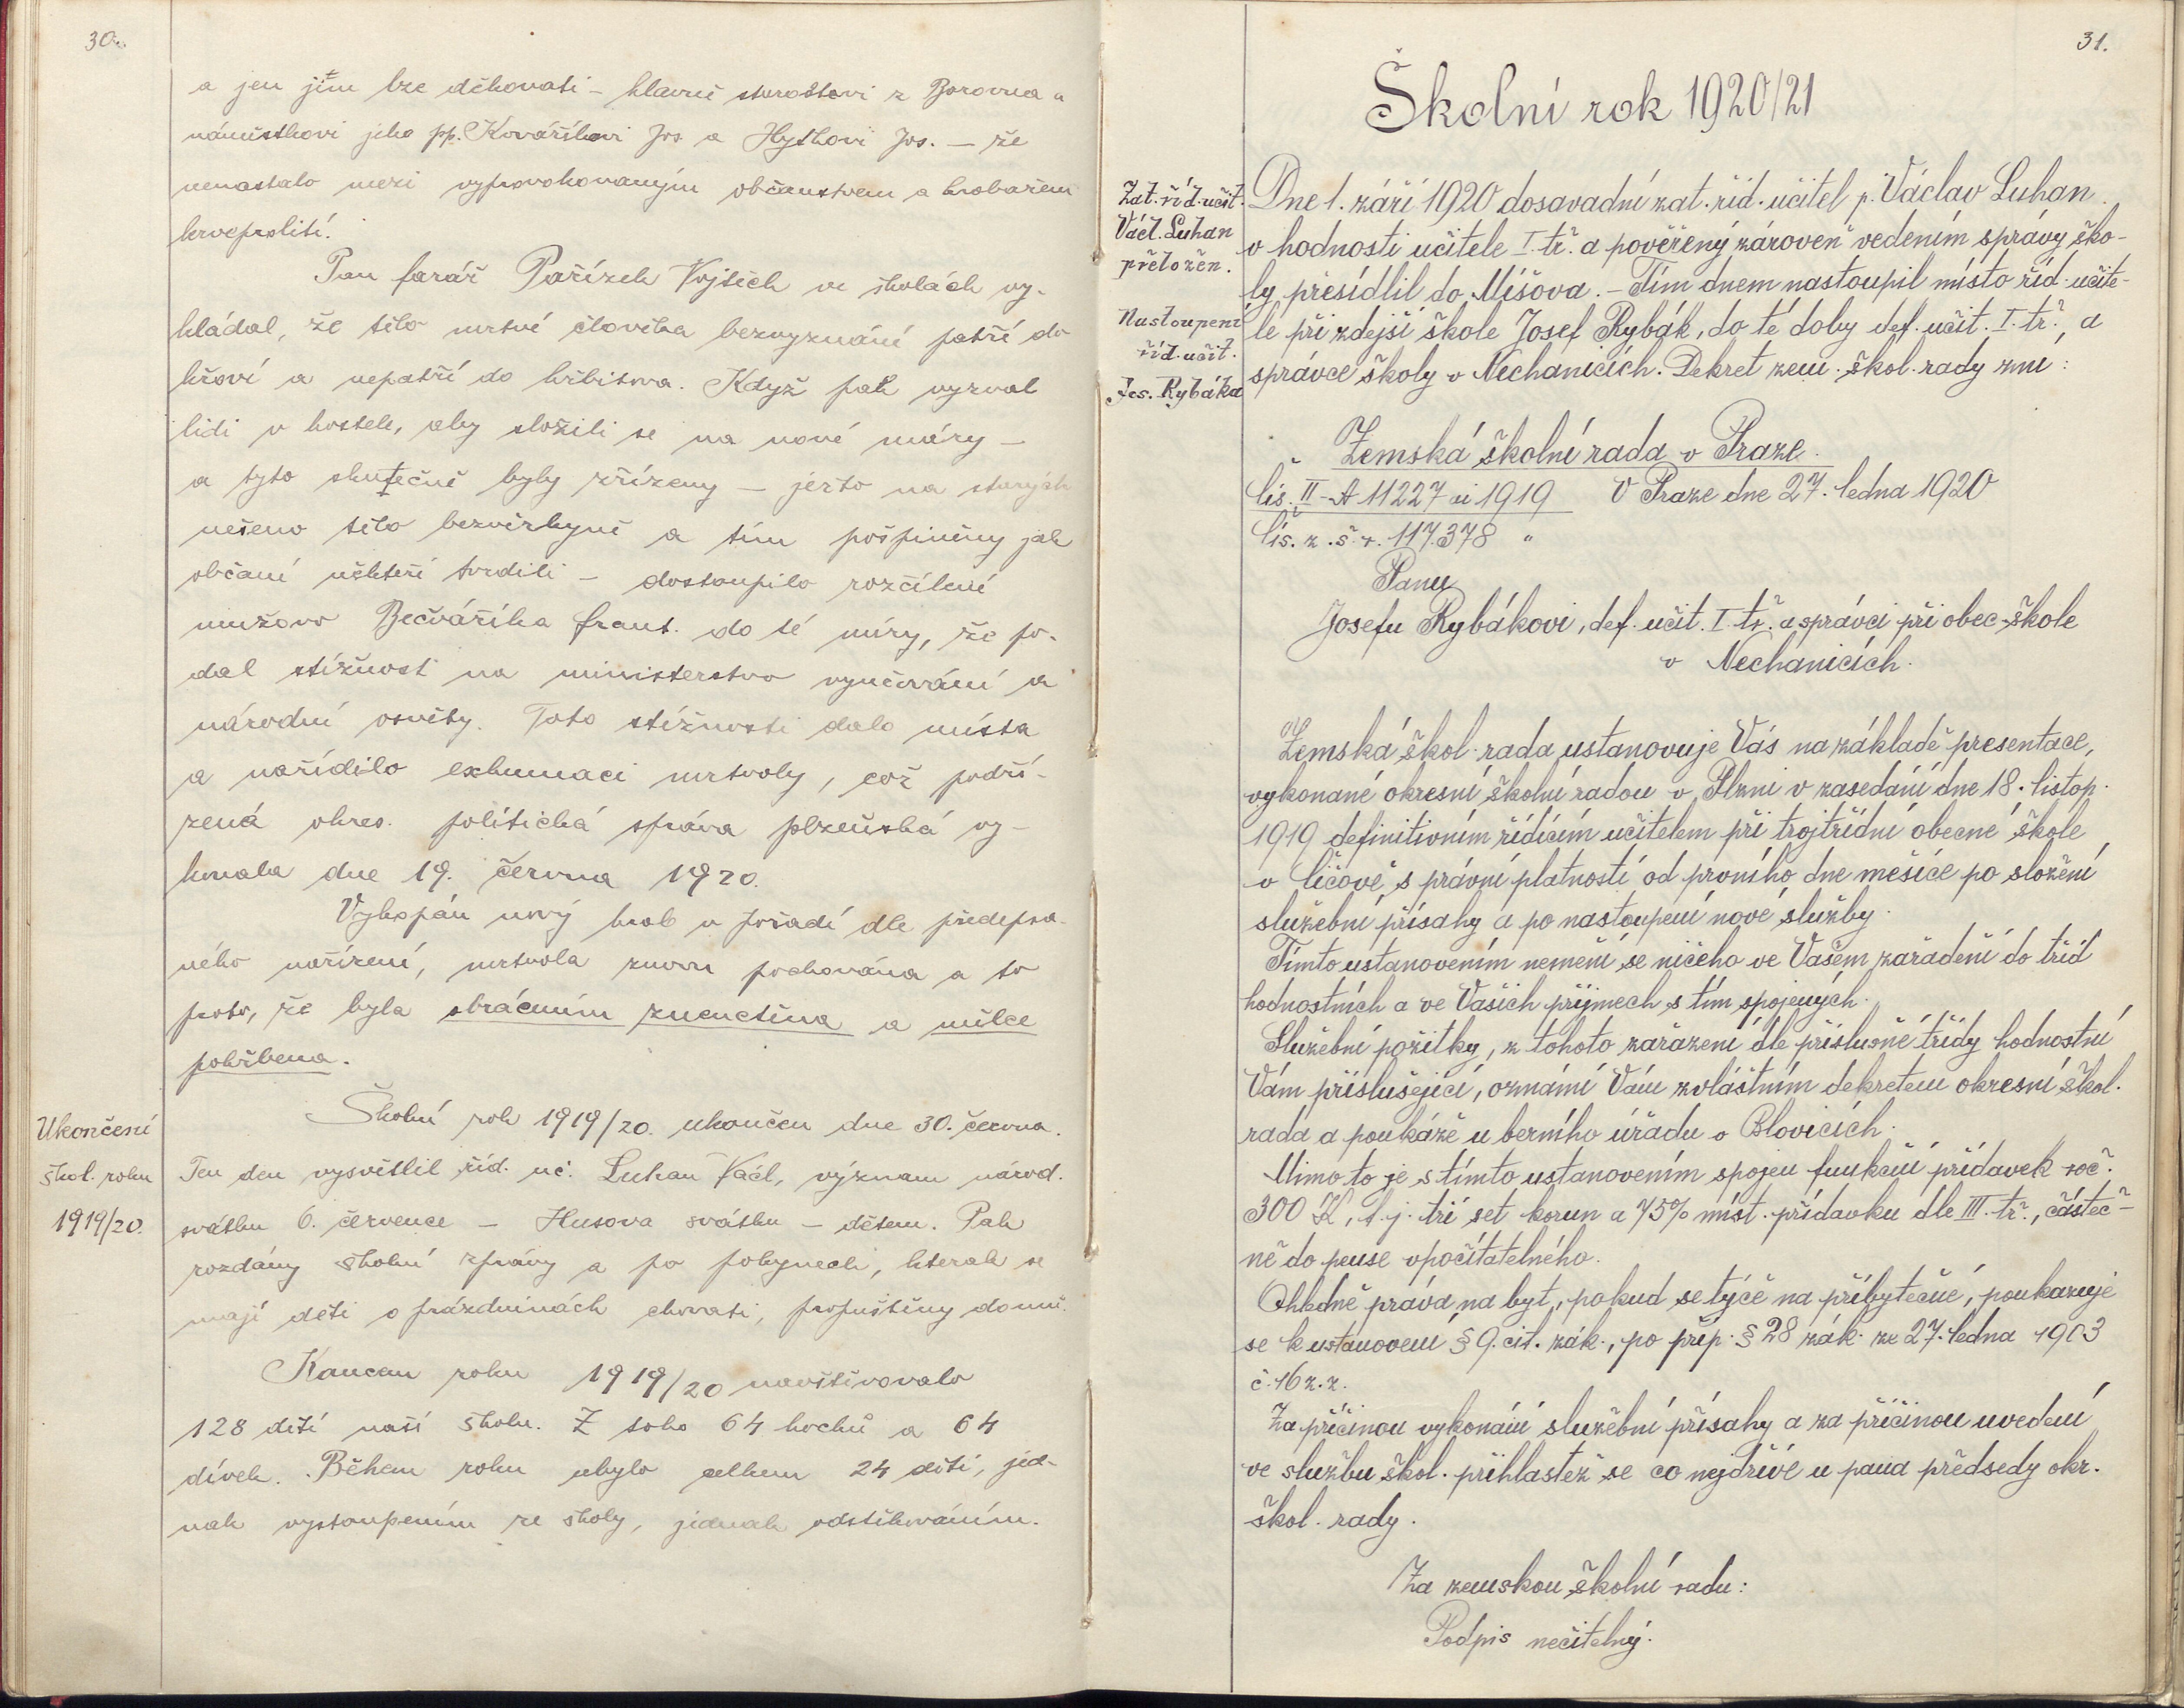 30.
a jen jim lze děkovati – hlavně starostovi z Borovna a
náměstkovi jeho pp. Kováříkovi Jos a Hythovi Jos. – že
nenastalo mezi vyprovokovaným občanstvem a hrobařem
krveprolití.
Pan farář Pařízek Vojtěch ve školách vy-
kládal, že tělo mrtvé člověka bezvyznání patří do
křoví a nepatří do hřbitova. Když pak vyzval
lidi v kostele, aby složili se na nové máry –
a tyto skutečně byly zřízeny – ježto na starých
nešeno tělo bezvěrkyně a tím pošpiněny jak
občané někteří tvrdili – dostoupilo rozčílení
mužovo Bečváříka Frant. do té míry, že po-
dal stížnost na ministerstvo vyučování a
národní osvěty. Toto stížnosti dalo místa
a nařídilo exhumaci mrtvoly, což podří-
zená okres. politická správa plzeňská vy-
konala dne 19. června 1920.
Vykopán nový hrob v pořadí dle předepsa-
ného nařízení, mrtvola znovu pochována a to
proto, že byla obrácením zneuctěna a mělce
pohřbena.
Ukončení
škol. roku
1919/20.
Školní rok 1919/20. ukončen dne 30. června.
Ten den vysvětlil říd. uč. Luhan Václ, význam národ.
svátku 6. července – Husova svátku – dětem. Pak
rozdány školní zprávy a po pokynech, kterak se
mají děti o prázdninách chovati, propuštěny domů.
Koncem roku 1919/20 navštěvovalo
128 dětí naši školu. Z toho 64 hochů a 64
dívek. Během roku ubylo celkem 24 dětí, jed-
nak vystoupením ze školy, jednak odstěhováním.
31.
Školní rok 1920/21
Zat. říd. učit.
Václ. Luhan
přeložen.
Dne 1. září 1920 dosavadní zat. říd. učitel p. Václav Luhan
v hodnosti učitele I. tř. a pověřený zároveň vedením správy ško-
ly přesídlil do Míšova. – Tím dnem nastoupil místo říd. učite-
Nastoupení
říd. učit.
Jos. Rybáka
le při zdejší škole Josef Rybák, do té doby def. učit. I. tř., a
správce školy v Nechanicích. Dekret zem. škol. rady zní:
Zemská školní rada v Praze.
Čís. II-A 11227 ai 1919 V Praze dne 27. ledna 1920
Čís. z. š. r. 117.378 "
Panu
Josefu Rybákovi, def. učit. I. tř. a správci při obec. škole
v Nechanicích.
Zemská škol. rada ustanovuje Vás na základě presentace,
vykonané okresní školní radou v Plzni v zasedání dne 18. listop.
1919 definitivním řídícím učitelem při trojtřídní obecné škole
v Číčově s právní platností od prvního dne měsíce po složení
služební přísahy a po nastoupení nové služby.
Tímto ustanovením nemění se ničeho ve Vašem zařadění do tříd
hodnostních a ve Vašich příjmech s tím spojených.
Služební požitky, z tohoto zařazení dle příslušné třídy hodnostní
Vám příslušející, oznámí Vám zvláštním dekretem okresní škol.
rada a poukáže u berního úřadu v Blovicích.
Mimo to je s tímto ustanovením spojen funkční přídavek roč.
300 K, t. j. tři set korun a 75% míst. přídavku dle III. tř., částeč-
ně do pense vpočítatelného.
Ohledně práva na byt, pokud se týče na příbytečné, poukazuje
se k ustanovení § 9. cit. zák., po příp. § 28 zák. ze 27. ledna 1903
č. 16 z. z.
Za příčinou vykonání služební přísahy a za příčinou uvedení
ve službu škol. přihlastež se co nejdříve u pana předsedy okr.
škol. rady.
Za zemskou školní radu:
Podpis nečitelný.